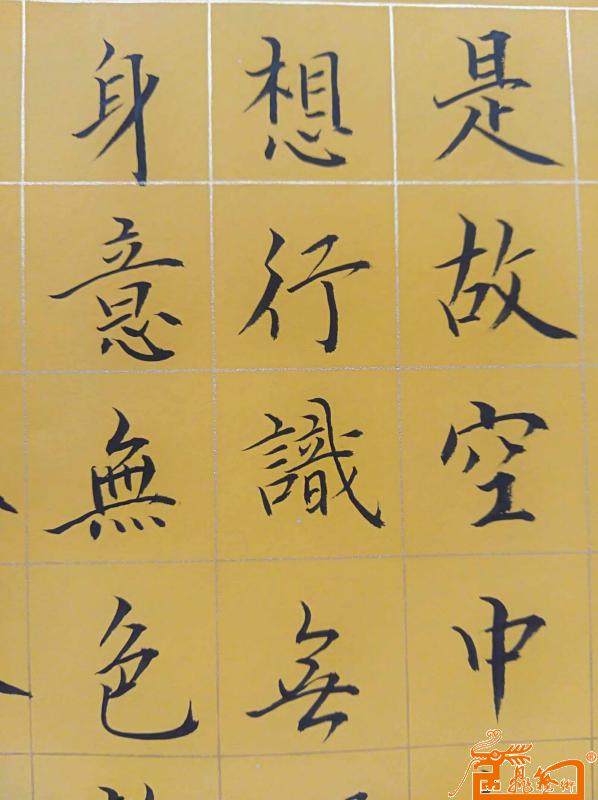 是故空中
想行識無
身意無色